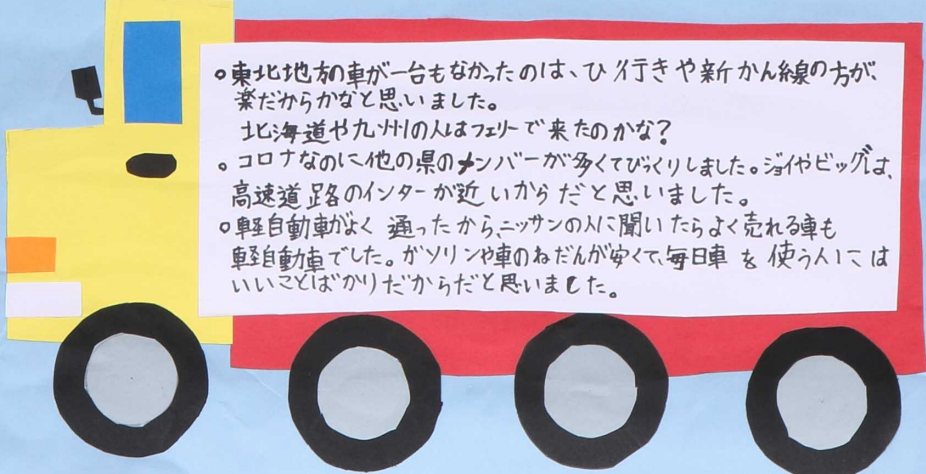 ○東北地方の車が一台もなかったのは、ひ行きや新かん線の方が、
楽だからかなと思いました。
北海道や九州の人はフェリーで来たのかな?
○コロナなのに他の県のナンバーが多くてびっくりしました。ジョイやビッグは、
高速道路のインターが近いからだと思いました。
○軽自動車がよく通ったから、ニッサンの人に聞いたらよく売れる車も
軽自動車でした。ガソリンや車のねだんが安くて、毎日車を使う人には
いいことばかりだからだと思いました。